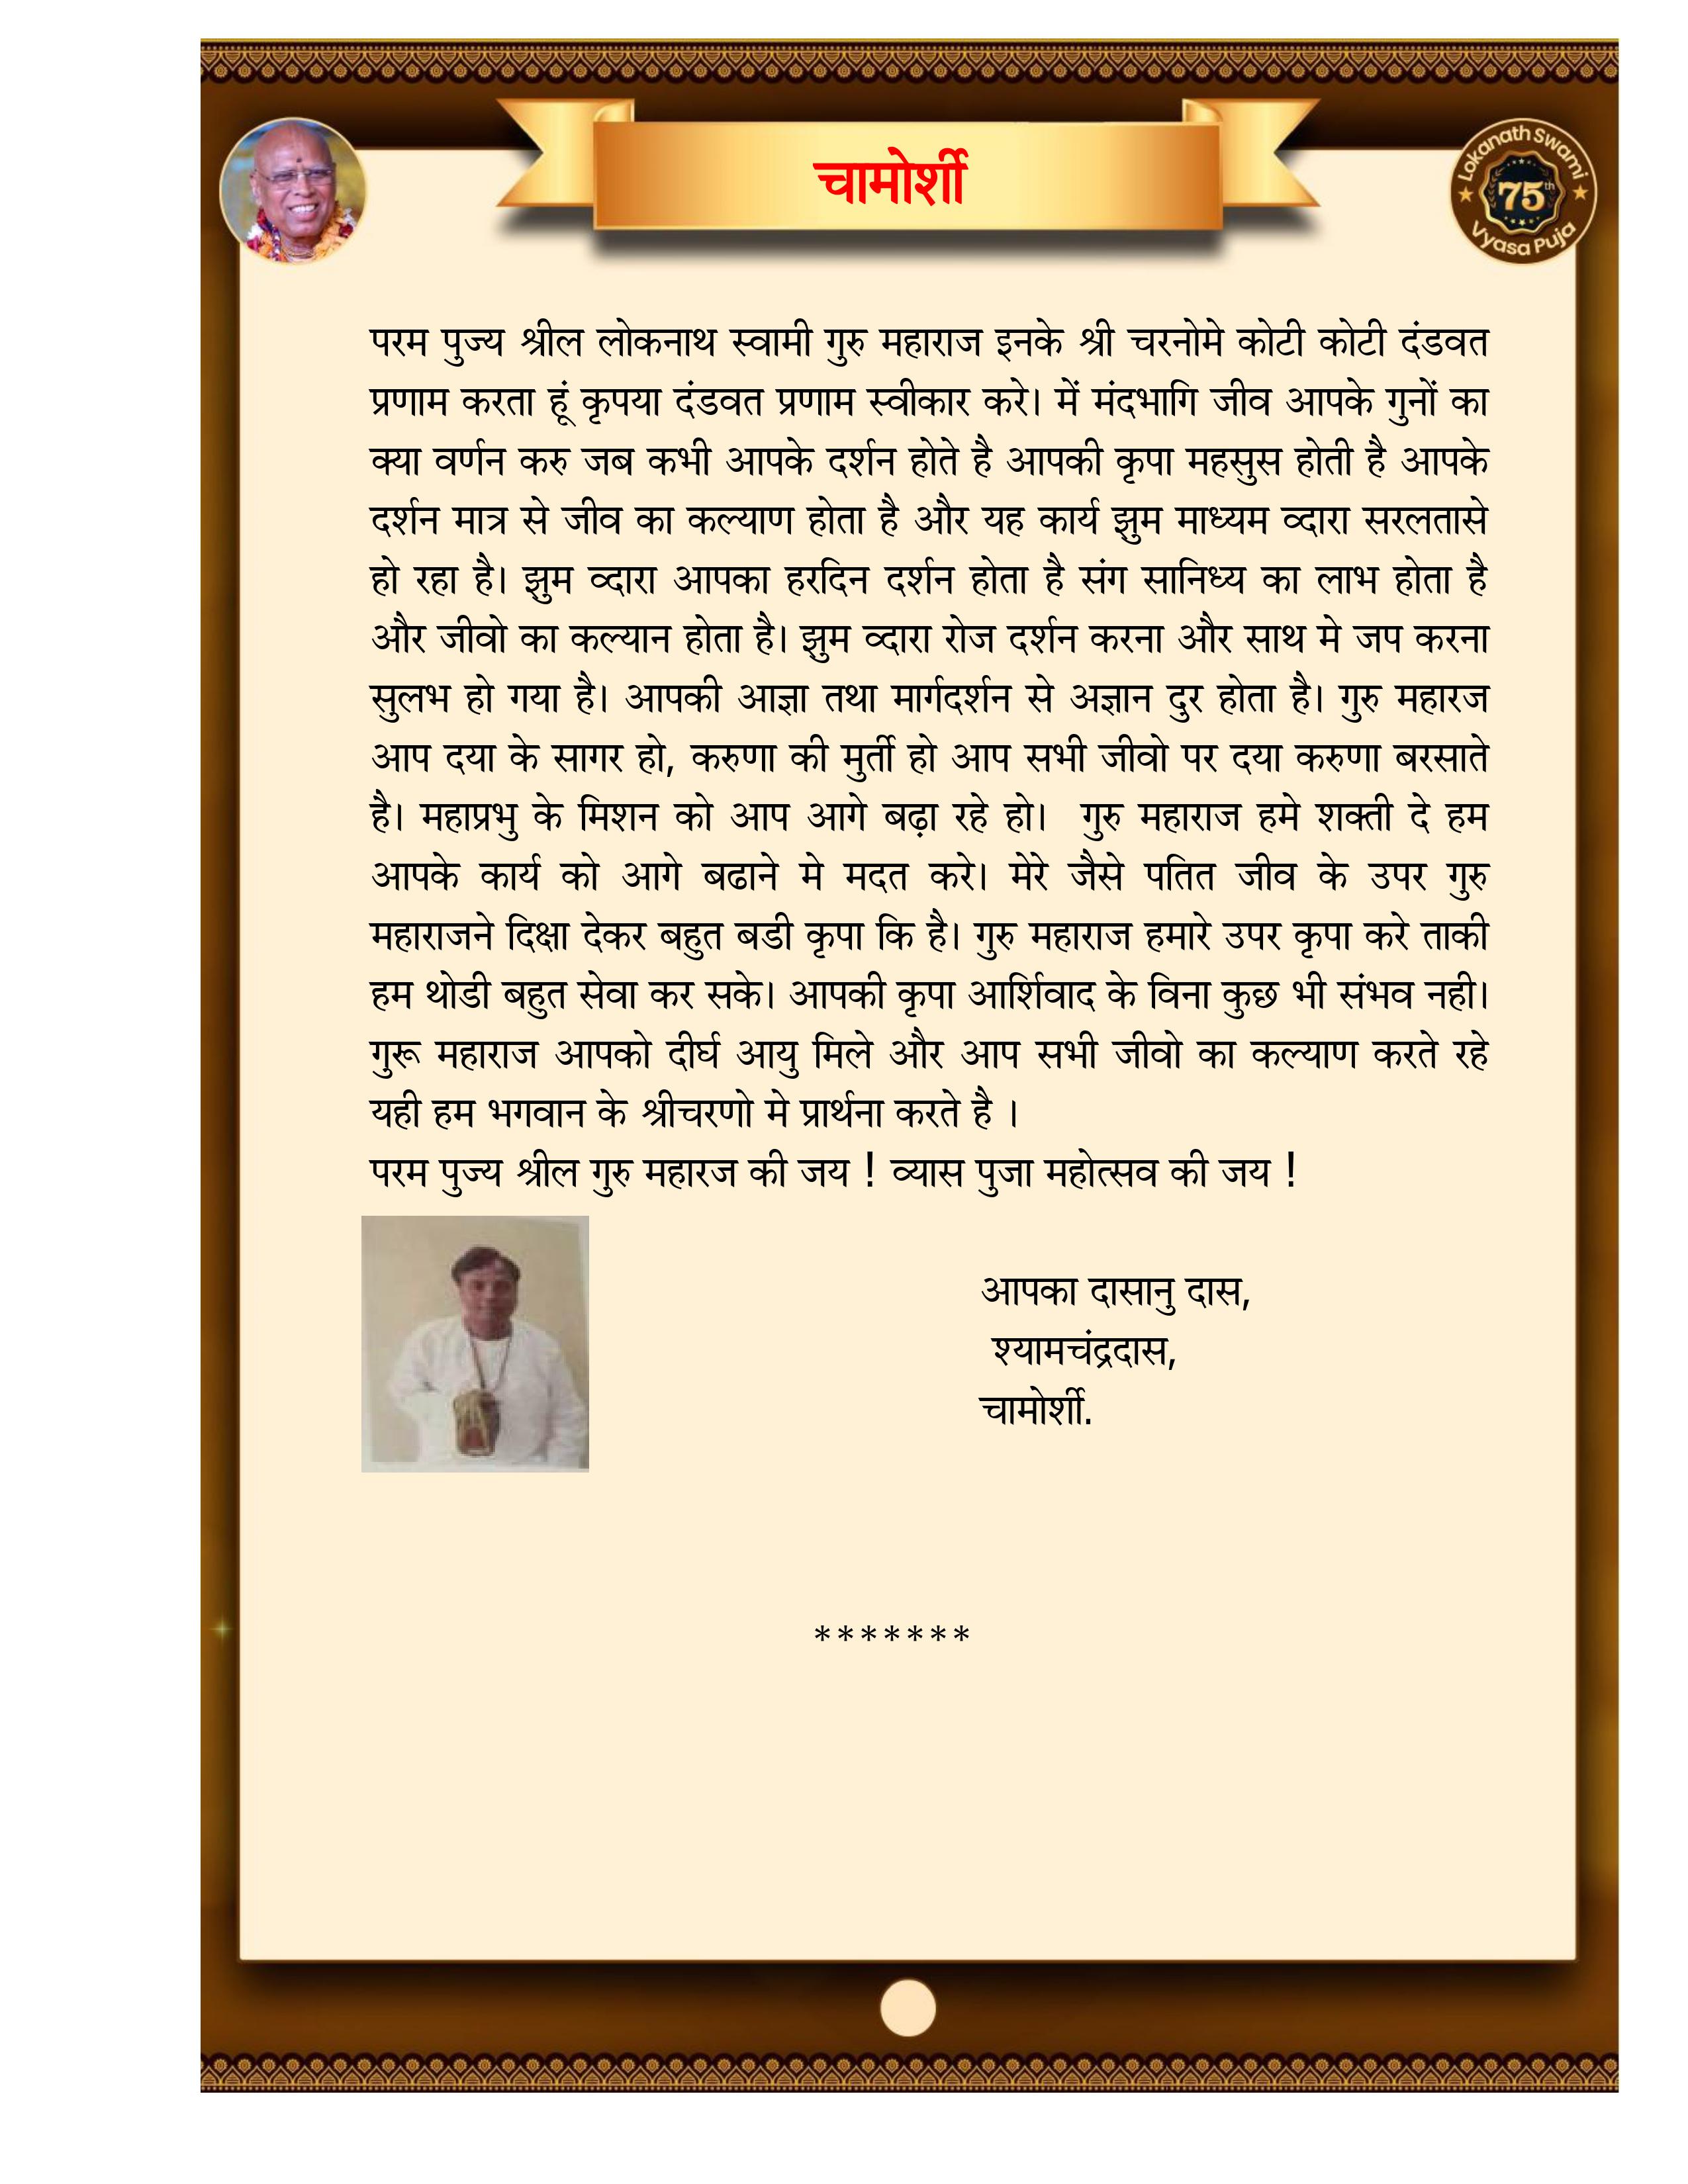 चामोर्शी
Lokanath Swami
75th
Vyasa Puja
परम पुज्य श्रील लोकनाथ स्वामी गुरु महाराज इनके श्री चरनोमे कोटी कोटी दंडवत
प्रणाम करता हूं कृपया दंडवत प्रणाम स्वीकार करे। में मंदभागि जीव आपके गुनों का
क्या वर्णन करु जब कभी आपके दर्शन होते है आपकी कृपा महसुस होती है आपके
दर्शन मात्र से जीव का कल्याण होता है और यह कार्य झुम माध्यम व्दारा सरलतासे
हो रहा है। झुम व्दारा आपका हरदिन दर्शन होता है संग सानिध्य का लाभ होता है
और जीवो का कल्यान होता है। झुम व्दारा रोज दर्शन करना और साथ मे जप करना
सुलभ हो गया है। आपकी आज्ञा तथा मार्गदर्शन से अज्ञान दुर होता है। गुरु महारज
आप दया के सागर हो, करुणा की मुर्ती हो आप सभी जीवो पर दया करुणा बरसाते
है। महाप्रभु के मिशन को आप आगे बढ़ा रहे हो। गुरु महाराज हमे शक्ती दे हम
आपके कार्य को आगे बढाने मे मदत करे। मेरे जैसे पतित जीव के उपर गुरु
महाराजने दिक्षा देकर बहुत बडी कृपा कि है। गुरु महाराज हमारे उपर कृपा करे ताकी
हम थोडी बहुत सेवा कर सके। आपकी कृपा आर्शिवाद के विना कुछ भी संभव नही।
गुरू महाराज आपको दीर्घ आयु मिले और आप सभी जीवो का कल्याण करते रहे
यही हम भगवान के श्रीचरणो मे प्रार्थना करते है ।
परम पुज्य श्रील गुरु महारज की जय ! व्यास पुजा महोत्सव की जय !
आपका दासानु दास,
श्यामचंद्रदास,
चामोर्शी.
*******